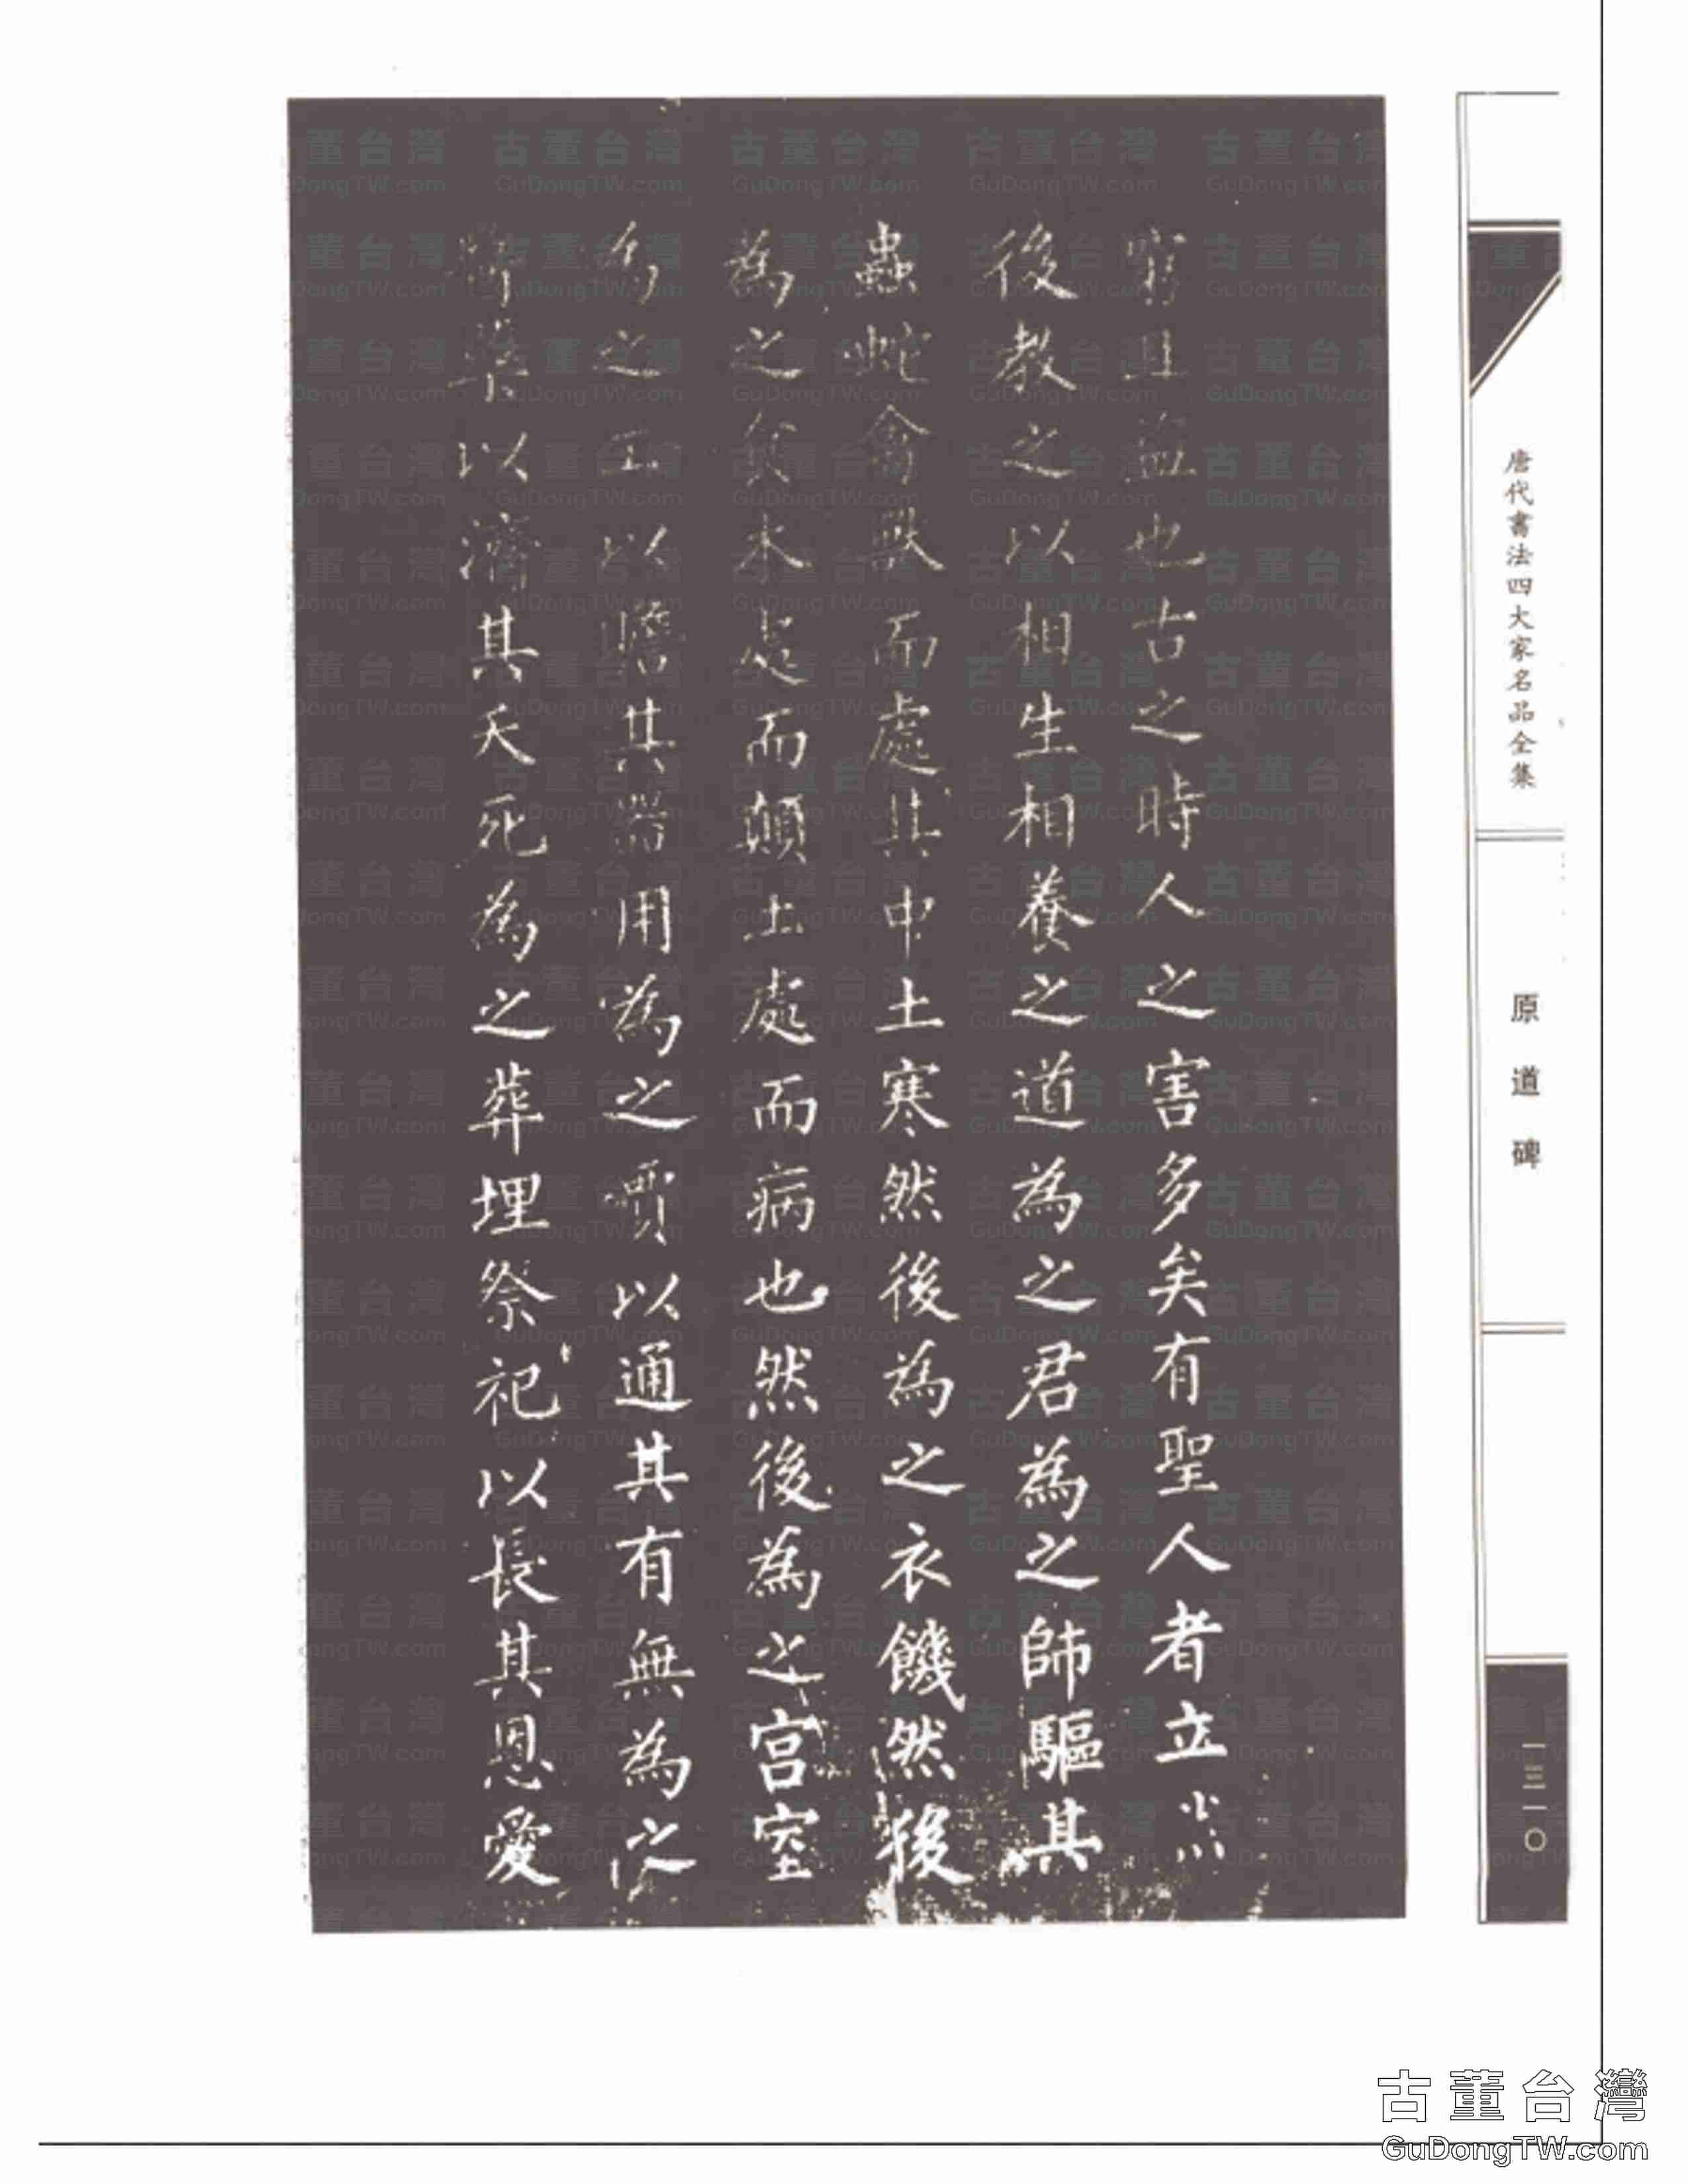 唐代書法四大家名品全集
原道碑
一三一〇
窮且盜也古之時人之害多矣有聖人者立然
後教之以相生相養之道為之君為之師驅其
蟲蛇禽獸而處其中土寒然後為之衣饑然後
為之食木處而顛土處而病也然後為之宮室
為之工以贍其器用為之賈以通其有無為之
醫藥以濟其夭死為之葬埋祭祀以長其恩愛
古董台灣
GuDongTW.com